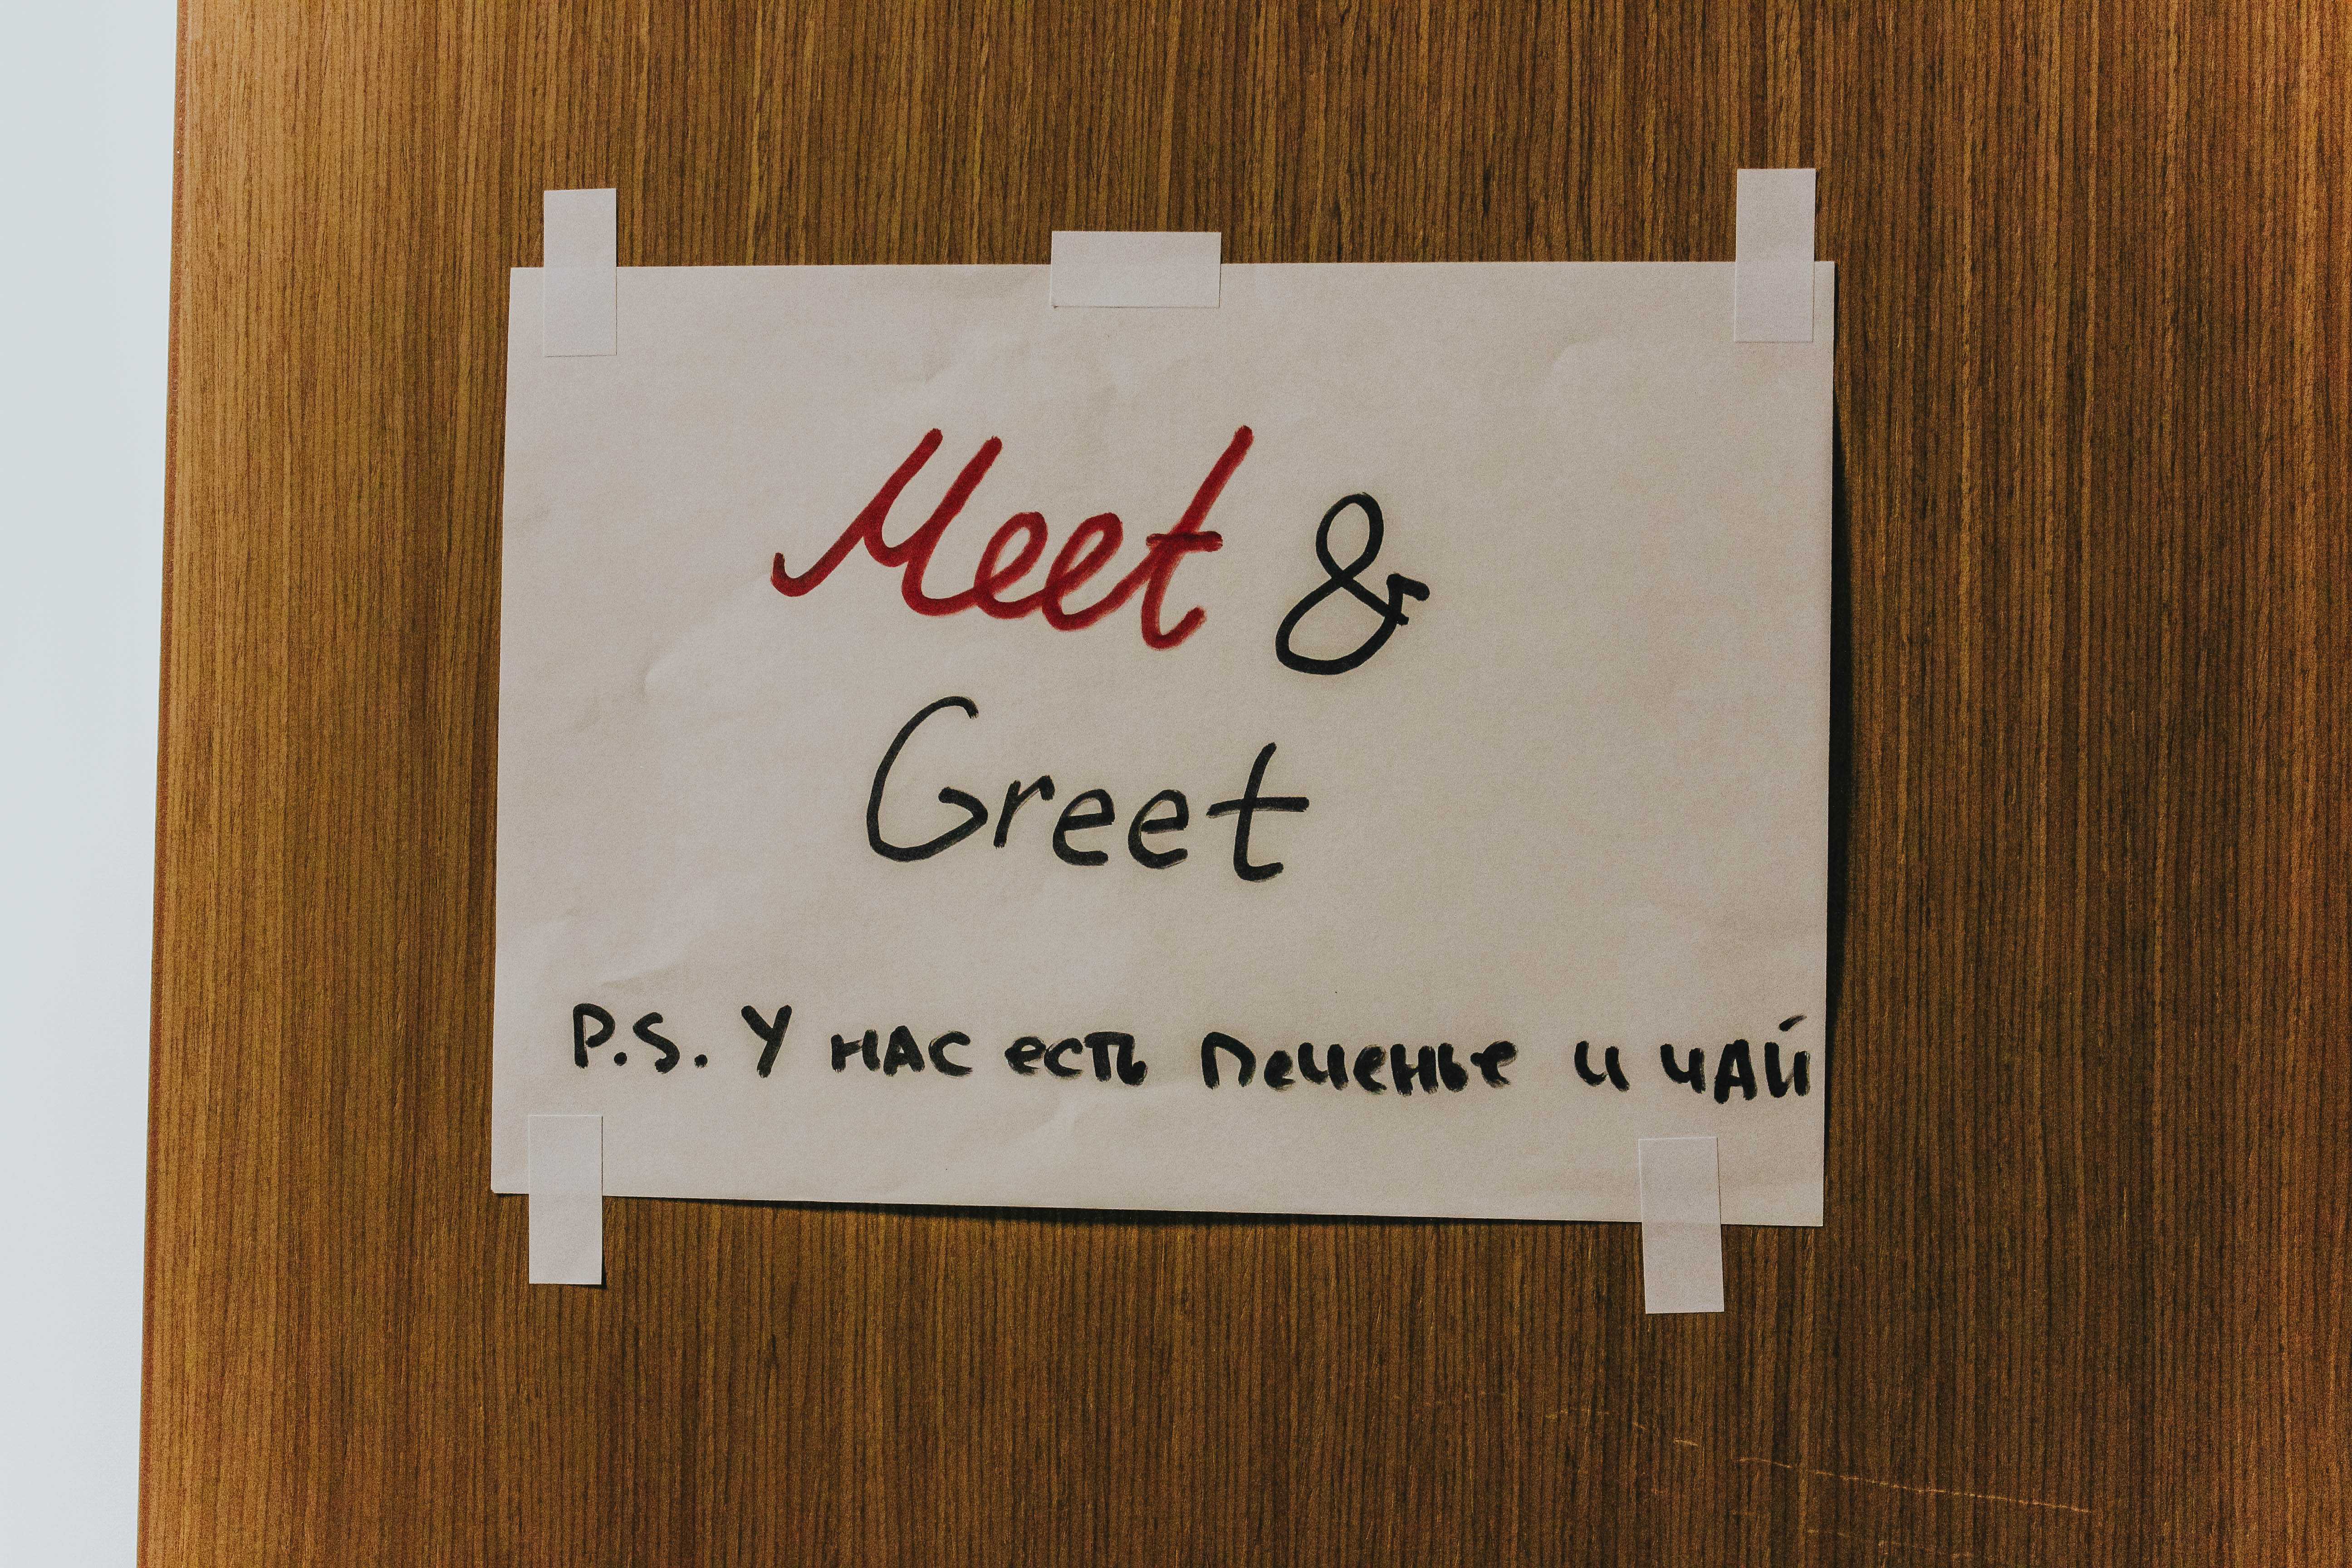 Meet &
Greet
P.S. У нас есть печенье и чай